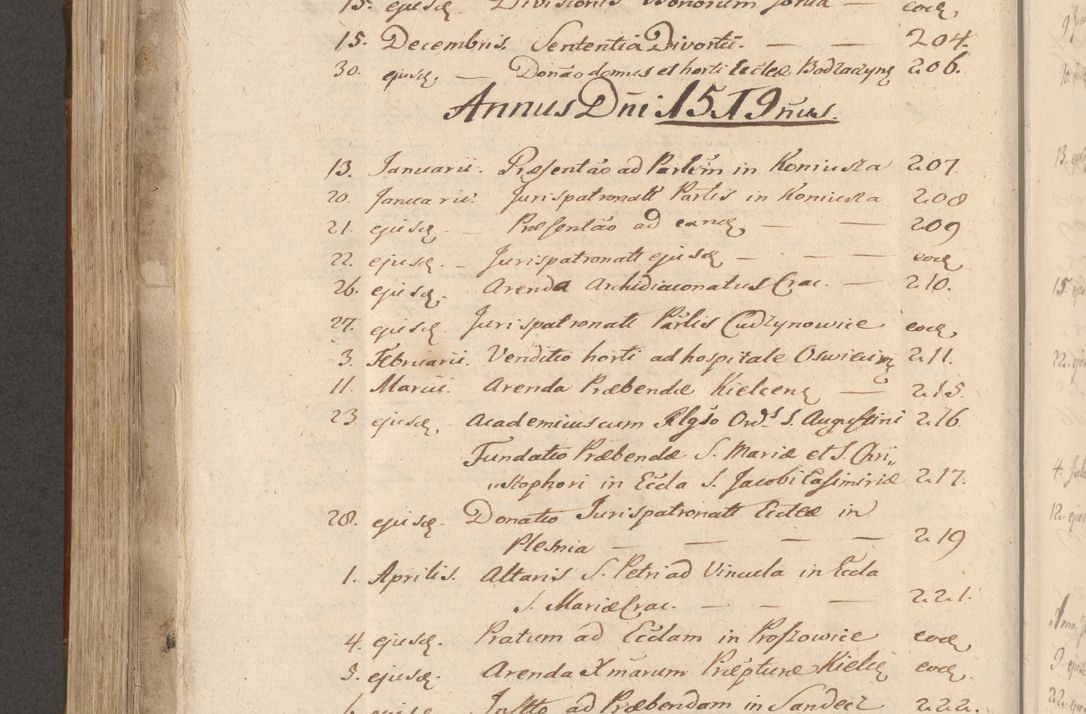 15. ejusq. Divisionis Bonorum forma — eocq
15. Decembris. Sententia Divortii. — — 204.
30. ejusq. — Donāo domus et horti Eccleæ Bodzaczyng 206.
Annus Dn̄i 1519 n̄us.
13. Januarii. Præsentāo ad Partem in Koniusza 207.
20. Januarii. Jurispatronatt Partis in Koniusza 208
21. ejusq. — Præsentāo ad eanq — — 209
22. ejusq. — Jurispatronatt ejusq — — — eocq
26. ejusq. Arenda Archidiaconatus Crac. — 210.
27. ejusq. Jurispatronatt Partis Cudzynowice eocq,
3. Februarii. Venditio horti ad hospitale Oswiecimq 211.
11. Marcii. Arenda Præbendæ Kielceng — 215.
23 ejusq. Academicus cum Rlgso Ord.s S. Augustini 216.
Fundatio Præbendæ S. Mariæ et S. Chri„
„stophori in Eccla S. Jacobi Casimiriæ 217.
28. ejusq. Donatio Jurispatronatt Eccleæ in
Plesnia — — — — 219
1. Aprilis. Altaris S. Petri ad Vincula in Eccla
S. Mariæ Crac. — — — 221.
4. ejusq. Pratum ad Ecclam in Proszowice eocq
3. ejusq. Arenda Xmarum Præpturæ Kielcq eocq,
Instto ad Præbendam in Sandecz 222.